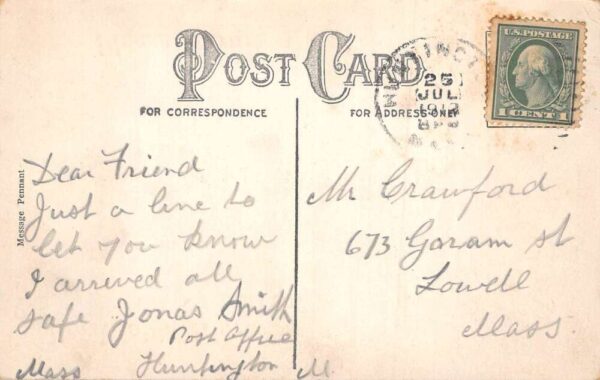 POST CARD
FOR CORRESPONDENCE
FOR ADDRESS ONLY
U.S. POSTAGE
1 CENT 1
25
JUL
Message Pennant
Dear Friend
Just a line to
let you know
I arrived all
safe Jonas Smith
Post Office
Mass Huntington M
Mr Crawford
673 Goram st
Lowell
Mass.